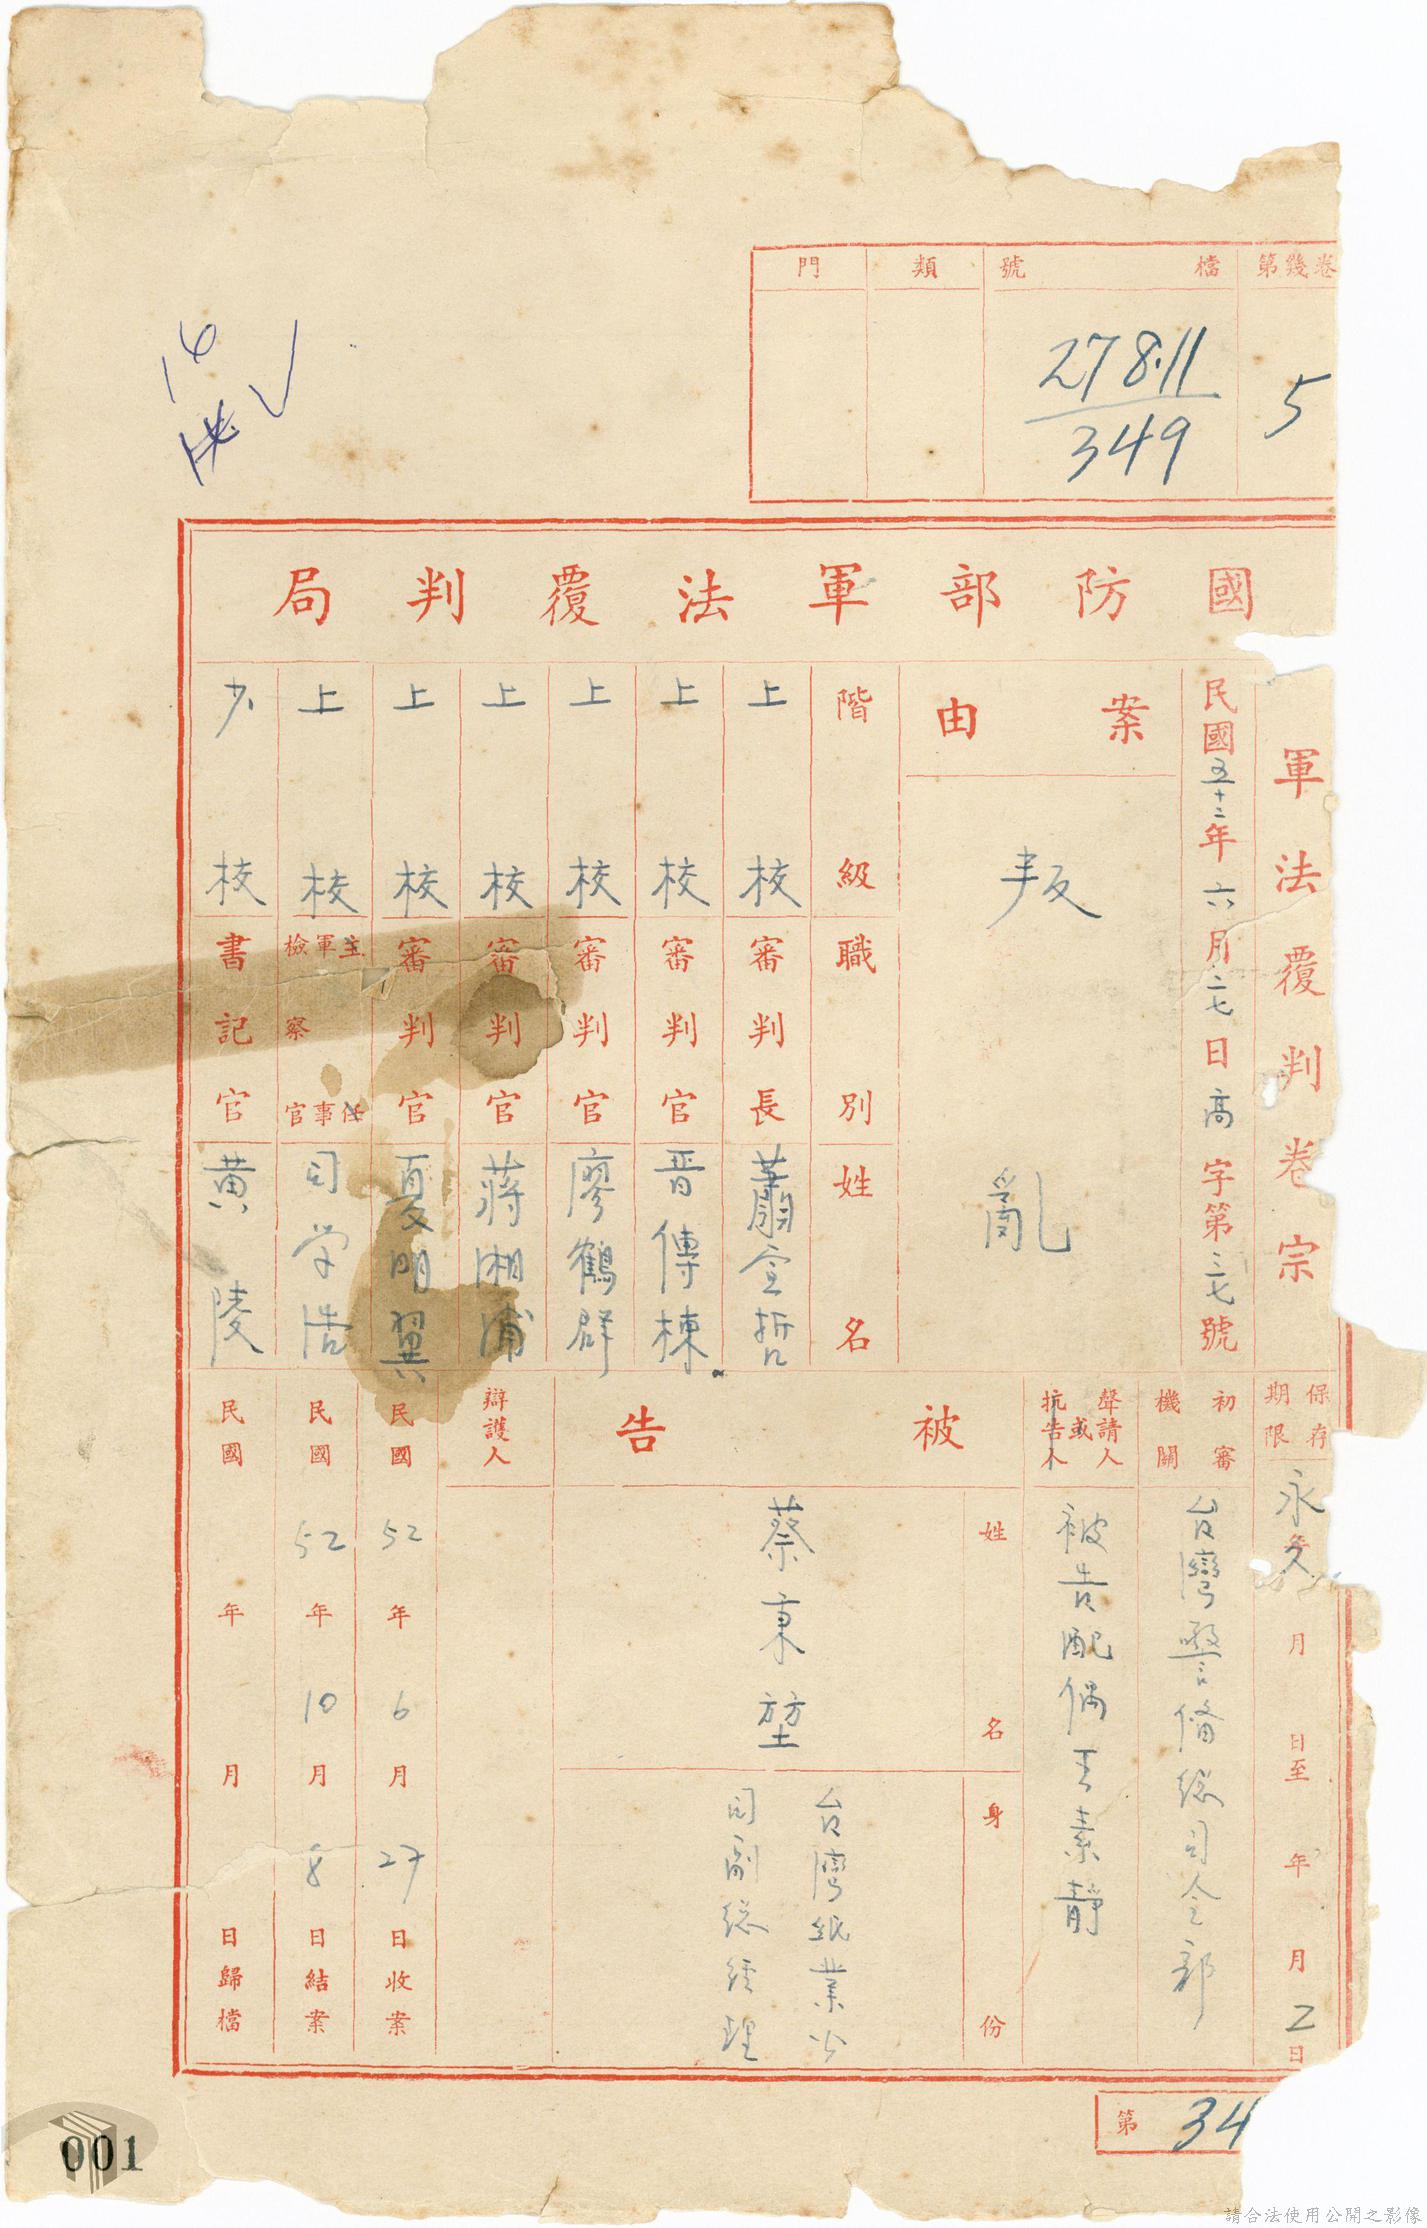 第幾卷 檔號 類 門
5
278.11
349
14
國防部軍法覆判局
軍法覆判卷宗
民國五十二年六月二七日高字第三七號
案由
叛亂
階級 職別 姓名
上校 審判長
上校 審判官 晋傳棟
上校 審判官 廖鶴群
上校 審判官 蔣湘浦
上校 審判官 夏明翼
上校 主任軍事檢察官
少校 書記官 黃陵
保存期限
永久年 月 日至 年 月 日
初審機關
台灣警備總司令部
聲請人或抗告人
被告配偶王素靜
被告
姓名
蔡東堃
身份
台灣紙業公司副總經理
辯護人
民國52年6月27日收案
民國52年10月8日結案
民國 年 月 日歸檔
第 34
001
請合法使用公開之影像